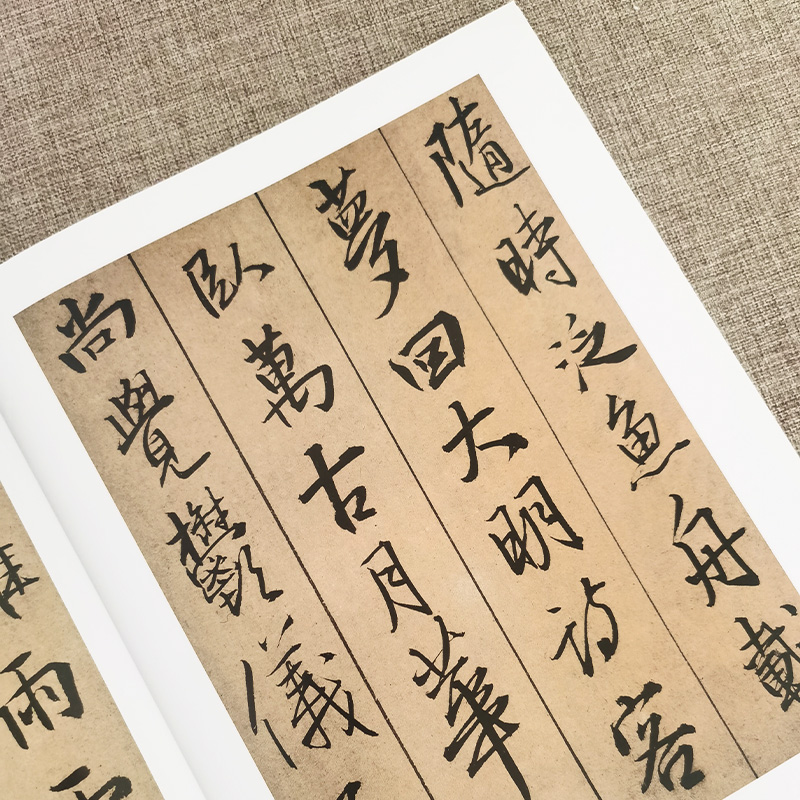 隨時泛魚舟載
夢回大明詩客
臥萬古月華
尚覺鬱儀
雨